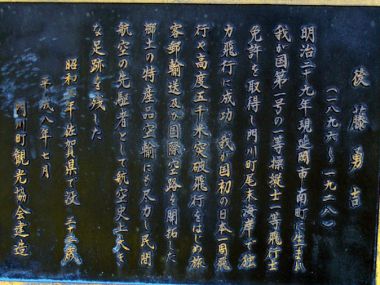 後藤勇吉
(一八九六～一九二八)
明治二十九年現延岡市南町に生まれ
我が国第一号の一等操縦士一等飛行士
免許を取得し門川町尾末海岸で独
力飛行に成功 我が国初の日本一周飛
行や高度五千米突破飛行をはじめ旅
客郵輸送及び国際空路を開拓した
郷土の特産品空輸にも尽力し民間
航空の先駆者として航空史上大き
な足跡を残した
昭和三年佐賀県で没 三十三歳
平成八年七月
門川町観光協会建造